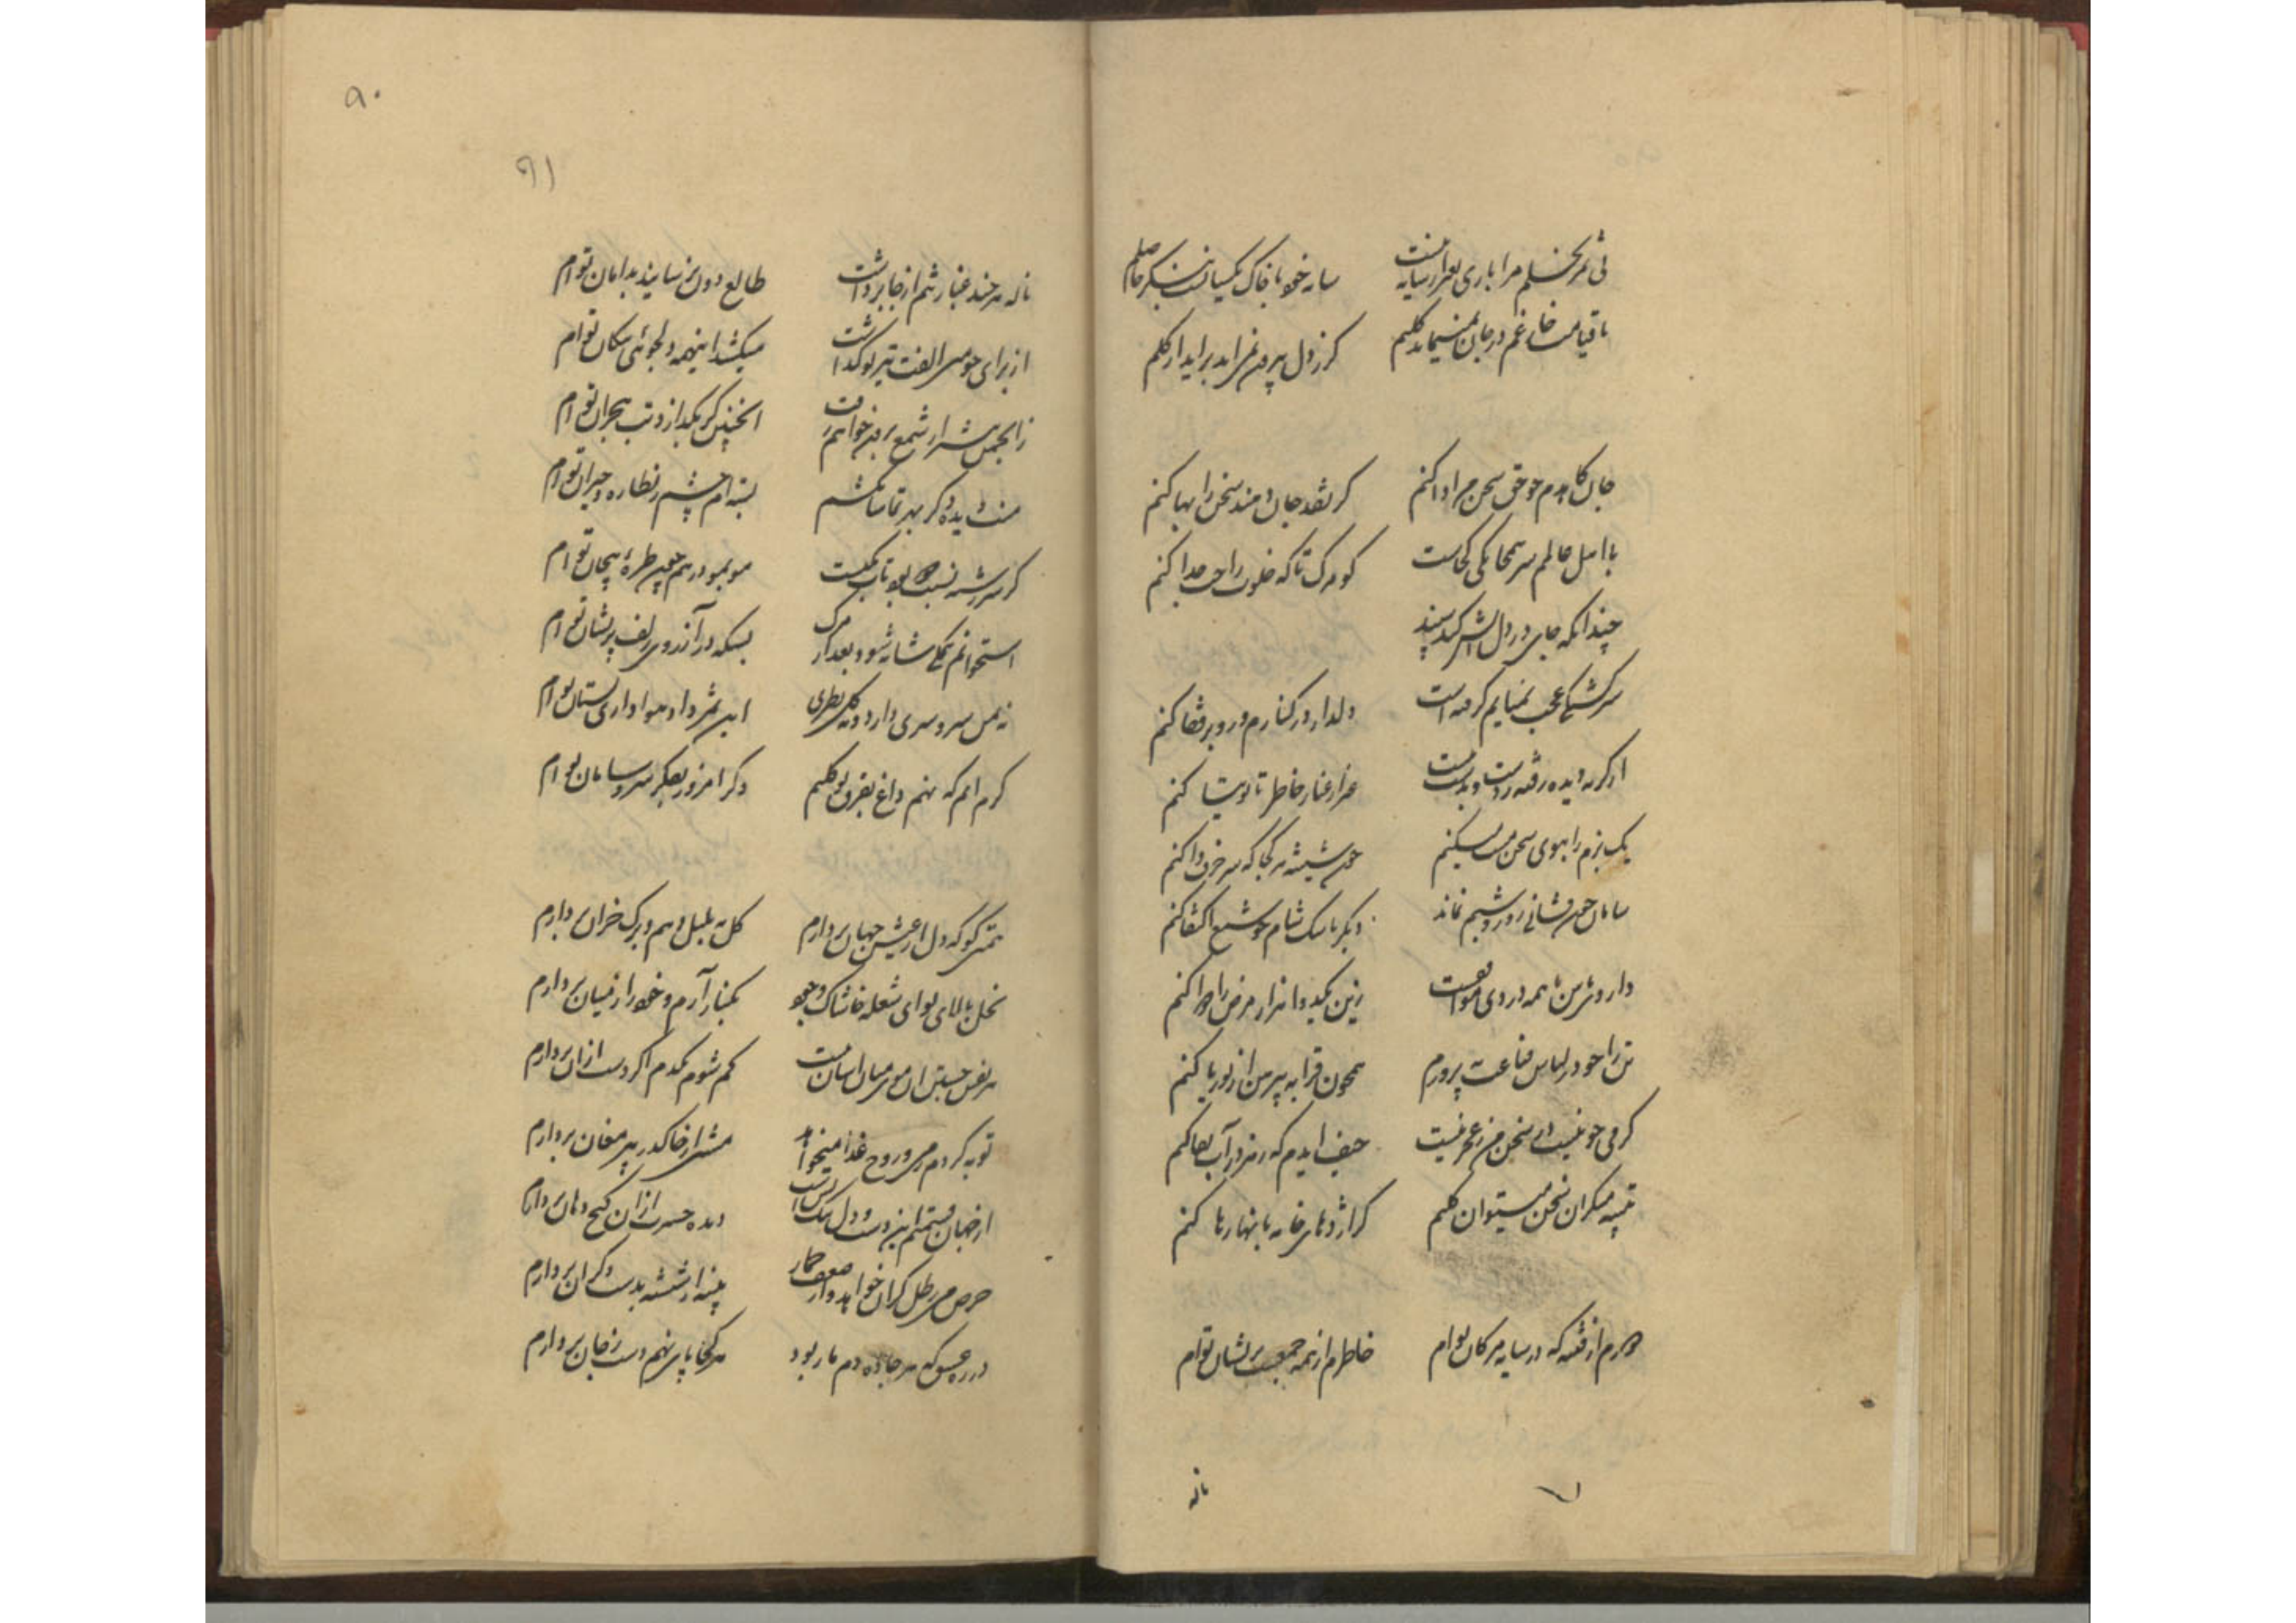 نی ثمر نخلم مرا باری بغیر از سایه نیست
سایه خود با خاک یکسانست بنگر حاصلم
تا قیامت خار غم در جان نمیماند کلیم
گر ز دل بیرون نمی‌آید برآید از گلم
جان کاهدم چو حق سخن را ادا کنم
گر نقد جان دهند سخن را بها کنم
با اهل عالم سر همخانگی کجاست
کو مرگ تا که خلوت را جدا کنم
چندانکه جای در دل
سرگشتگی عجب بمیانم گرفته است
دلدار در کنارم و رو بر قفا کنم
از گریه دیده رفته ز دست و بدست نیست
غیر از غبار خاطر تا توتیا کنم
یک بزم را ببوی سخن مست میکنم
چون شیشه هر کجا که سر حرف وا کنم
سامان خون فشانی روز و شبم نماند
دیگر باشک شام چو شمع اکتفا کنم
دارو بتن با همه دردی موافقست
زین یک دوا هزار مرض را دوا کنم
تن را چو در لباس قناعت بپرورم
همچون قرابه پیرهن از بوریا کنم
گرمی چو نیست در سخن من ز عجز نیست
حیف آیدم که زهر در آب بقا کنم
تنبیه منکران سخن میتوان کلیم
گر اژدهای خامه بآنها رها کنم
دورم از فتنه که در سایه مژگان توام
خاطرم از همه جمعست پریشان توام
ناله
۹۰
۹۱
ناله هر چند غبار تنم از جا برداشت
طالع دون نرسانید بدامان توام
از برای چو منی الفت تیر تو گذاشت
میکشد اینهمه دلجوئی پیکان توام
زانجمن بیشتر از شمع برون خواهم رفت
اینچنین گر بگدازد تب هجران توام
منت دیده دگر بهر تماشا نکشم
بسته‌ام چشم ز نظاره و حیران توام
گر سررشته نسبت بود تاب یکیست
مو بمو درهم چون طره پیچان توام
استخوانم همگی شانه شود بعد از مرگ
بسکه در آرزوی زلف پریشان توام
نه بمن سرو سری دارد و نه گل نظری
این ثمر داد هواداری بستان توام
گرم آنم که نهم داغ بفرق تو کلیم
دگر امروز بفکر سر و سامان توام
همتی کو که دل از عیش جهان بردارم
گل به بلبل دهم و برگ خزان بردارم
نخل بالای تو ای شعله خاشاک وجود
بکنار آرم و خود را ز میان بردارم
هر نفس جستن آن موی میان آسان نیست
گم شوم یکدم اگر دست از آن بردارم
توبه کردم ز می و روح غذا میخواهد
مشتی از خاک در پیر مغان بردارم
از جهان قسمتم این دست و دل تنگ بس است
دیده حسرت از آن کنج دهان بردارم
حرص می رطل گران خواهد و از ضعف خمار
پنبه از شیشه بدست دگران بردارم
در ره عشق که هر جاده دم مار بود
هر کجا پای نهم دست ز جان بردارم